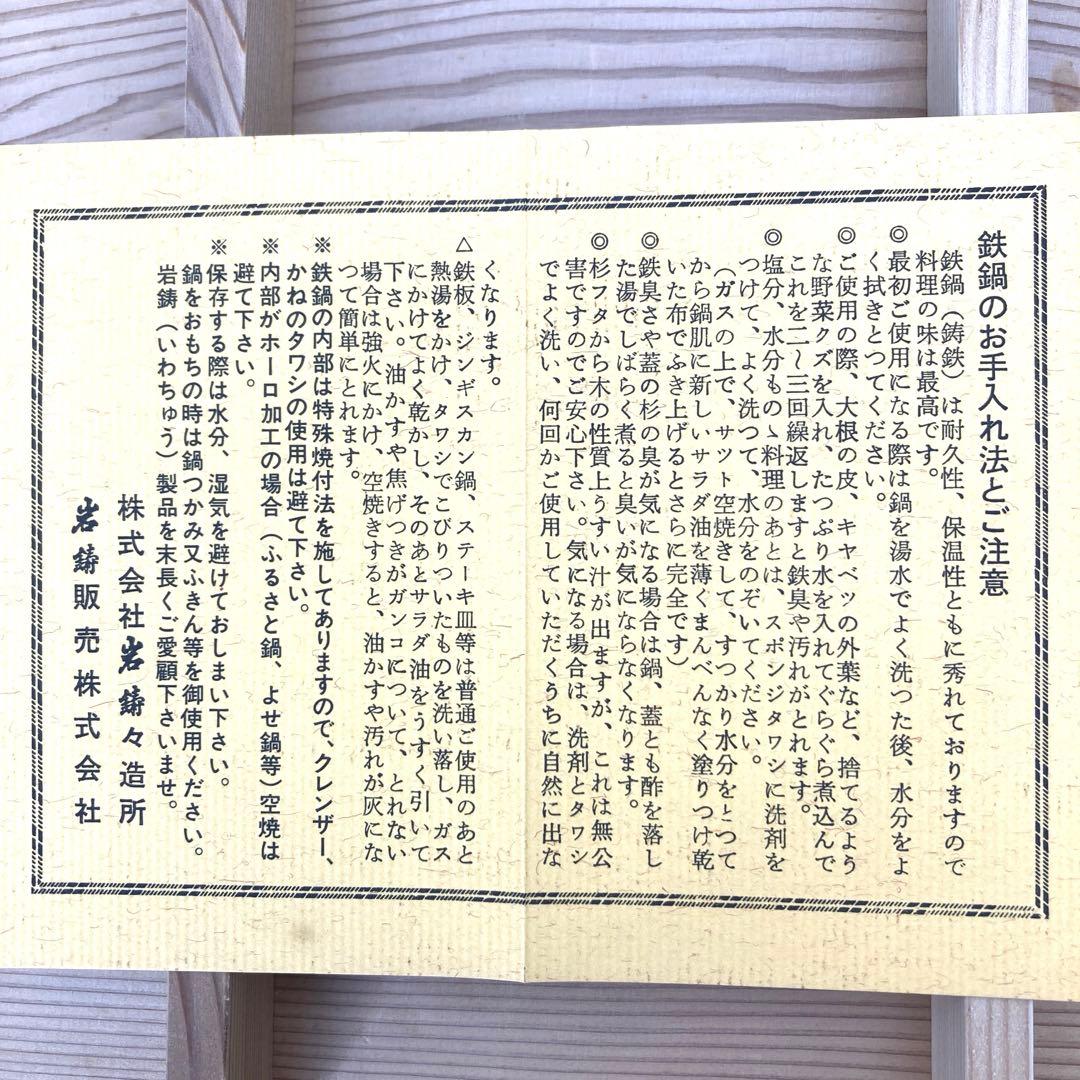 鉄鍋のお手入れ法とご注意
鉄鍋（鋳鉄）は耐久性、保温性ともに秀れておりますので
料理の味は最高です。
◎最初ご使用になる際は鍋を湯水でよく洗つた後、水分をよ
く拭きとつてください。
◎ご使用の際、大根の皮、キヤベツの外葉など、捨てるよう
な野菜クズを入れ、たつぷり水を入れてぐらぐら煮込んで
これを二〜三回繰返しますと鉄臭や汚れがとれます。
◎塩分、水分ものゝ料理のあとは、スポンジタワシに洗剤を
つけて、よく洗つて、水分をのぞいてください。
（ガスの上で、サツト空焼きして、すつかり水分をとつて
から鍋肌に新しいサラダ油を薄くまんべんなく塗りつけ乾
いた布でふき上げるとさらに完全です）
◎鉄臭さや蓋の杉の臭が気になる場合は鍋、蓋とも酢を落し
た湯でしばらく煮ると臭いが気にならなくなります。
◎杉フタから木の性質上うすい汁が出ますが、これは無公
害ですのでご安心下さい。気になる場合は、洗剤とタワシ
でよく洗い、何回かご使用していただくうちに自然に出な
くなります。
△鉄板、ジンギスカン鍋、ステーキ皿等は普通ご使用のあと
熱湯をかけ、タワシでこびりついたものを洗い落し、ガス
にかけてよく乾かし、そのあとサラダ油をうすく引いて
下さい。油かすや焦げつきがガンコについて、とれない
場合は強火にかけ、空焼きすると、油かすや汚れが灰にな
つて簡単にとれます。
※鉄鍋の内部は特殊焼付法を施してありますので、クレンザー、
かねのタワシの使用は避て下さい。
※内部がホーロ加工の場合（ふるさと鍋、よせ鍋等）空焼は
避て下さい。
※保存する際は水分、湿気を避けておしまい下さい。
鍋をおもちの時は鍋つかみ又ふきん等を御使用ください。
岩鋳（いわちゅう）製品を末長くご愛顧下さいませ。
株式会社岩鋳々造所
岩鋳販売株式会社